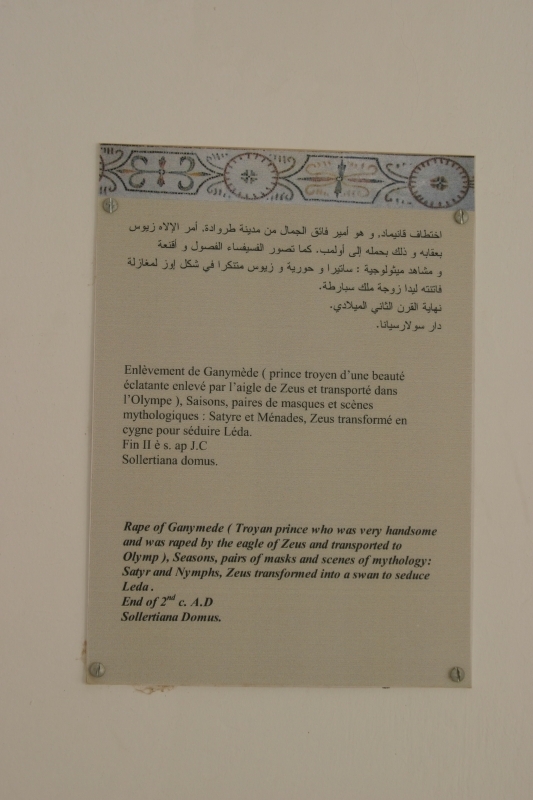 اختطاف قانيماد. و هو أمير فائق الجمال من مدينة طروادة. أمر الإلاه زيوس
بعقابه و ذلك بحمله إلى أولمب. كما تصور الفسيفساء الفصول و أقنعة
و مشاهد ميثولوجية : ساتيرا و حورية و زيوس متنكرا في شكل إوز لمغازلة
فاتنته ليدا زوجة ملك سبارطة.
نهاية القرن الثاني الميلادي.
دار سولارسيانا.
Enlèvement de Ganymède ( prince troyen d’une beauté
éclatante enlevé par l’aigle de Zeus et transporté dans
l’Olympe ), Saisons, paires de masques et scènes
mythologiques : Satyre et Ménades, Zeus transformé en
cygne pour séduire Léda.
Fin II è s. ap J.C
Sollertiana domus.
Rape of Ganymede ( Troyan prince who was very handsome
and was raped by the eagle of Zeus and transported to
Olymp ), Seasons, pairs of masks and scenes of mythology:
Satyr and Nymphs, Zeus transformed into a swan to seduce
Leda .
End of 2nd c. A.D
Sollertiana Domus.